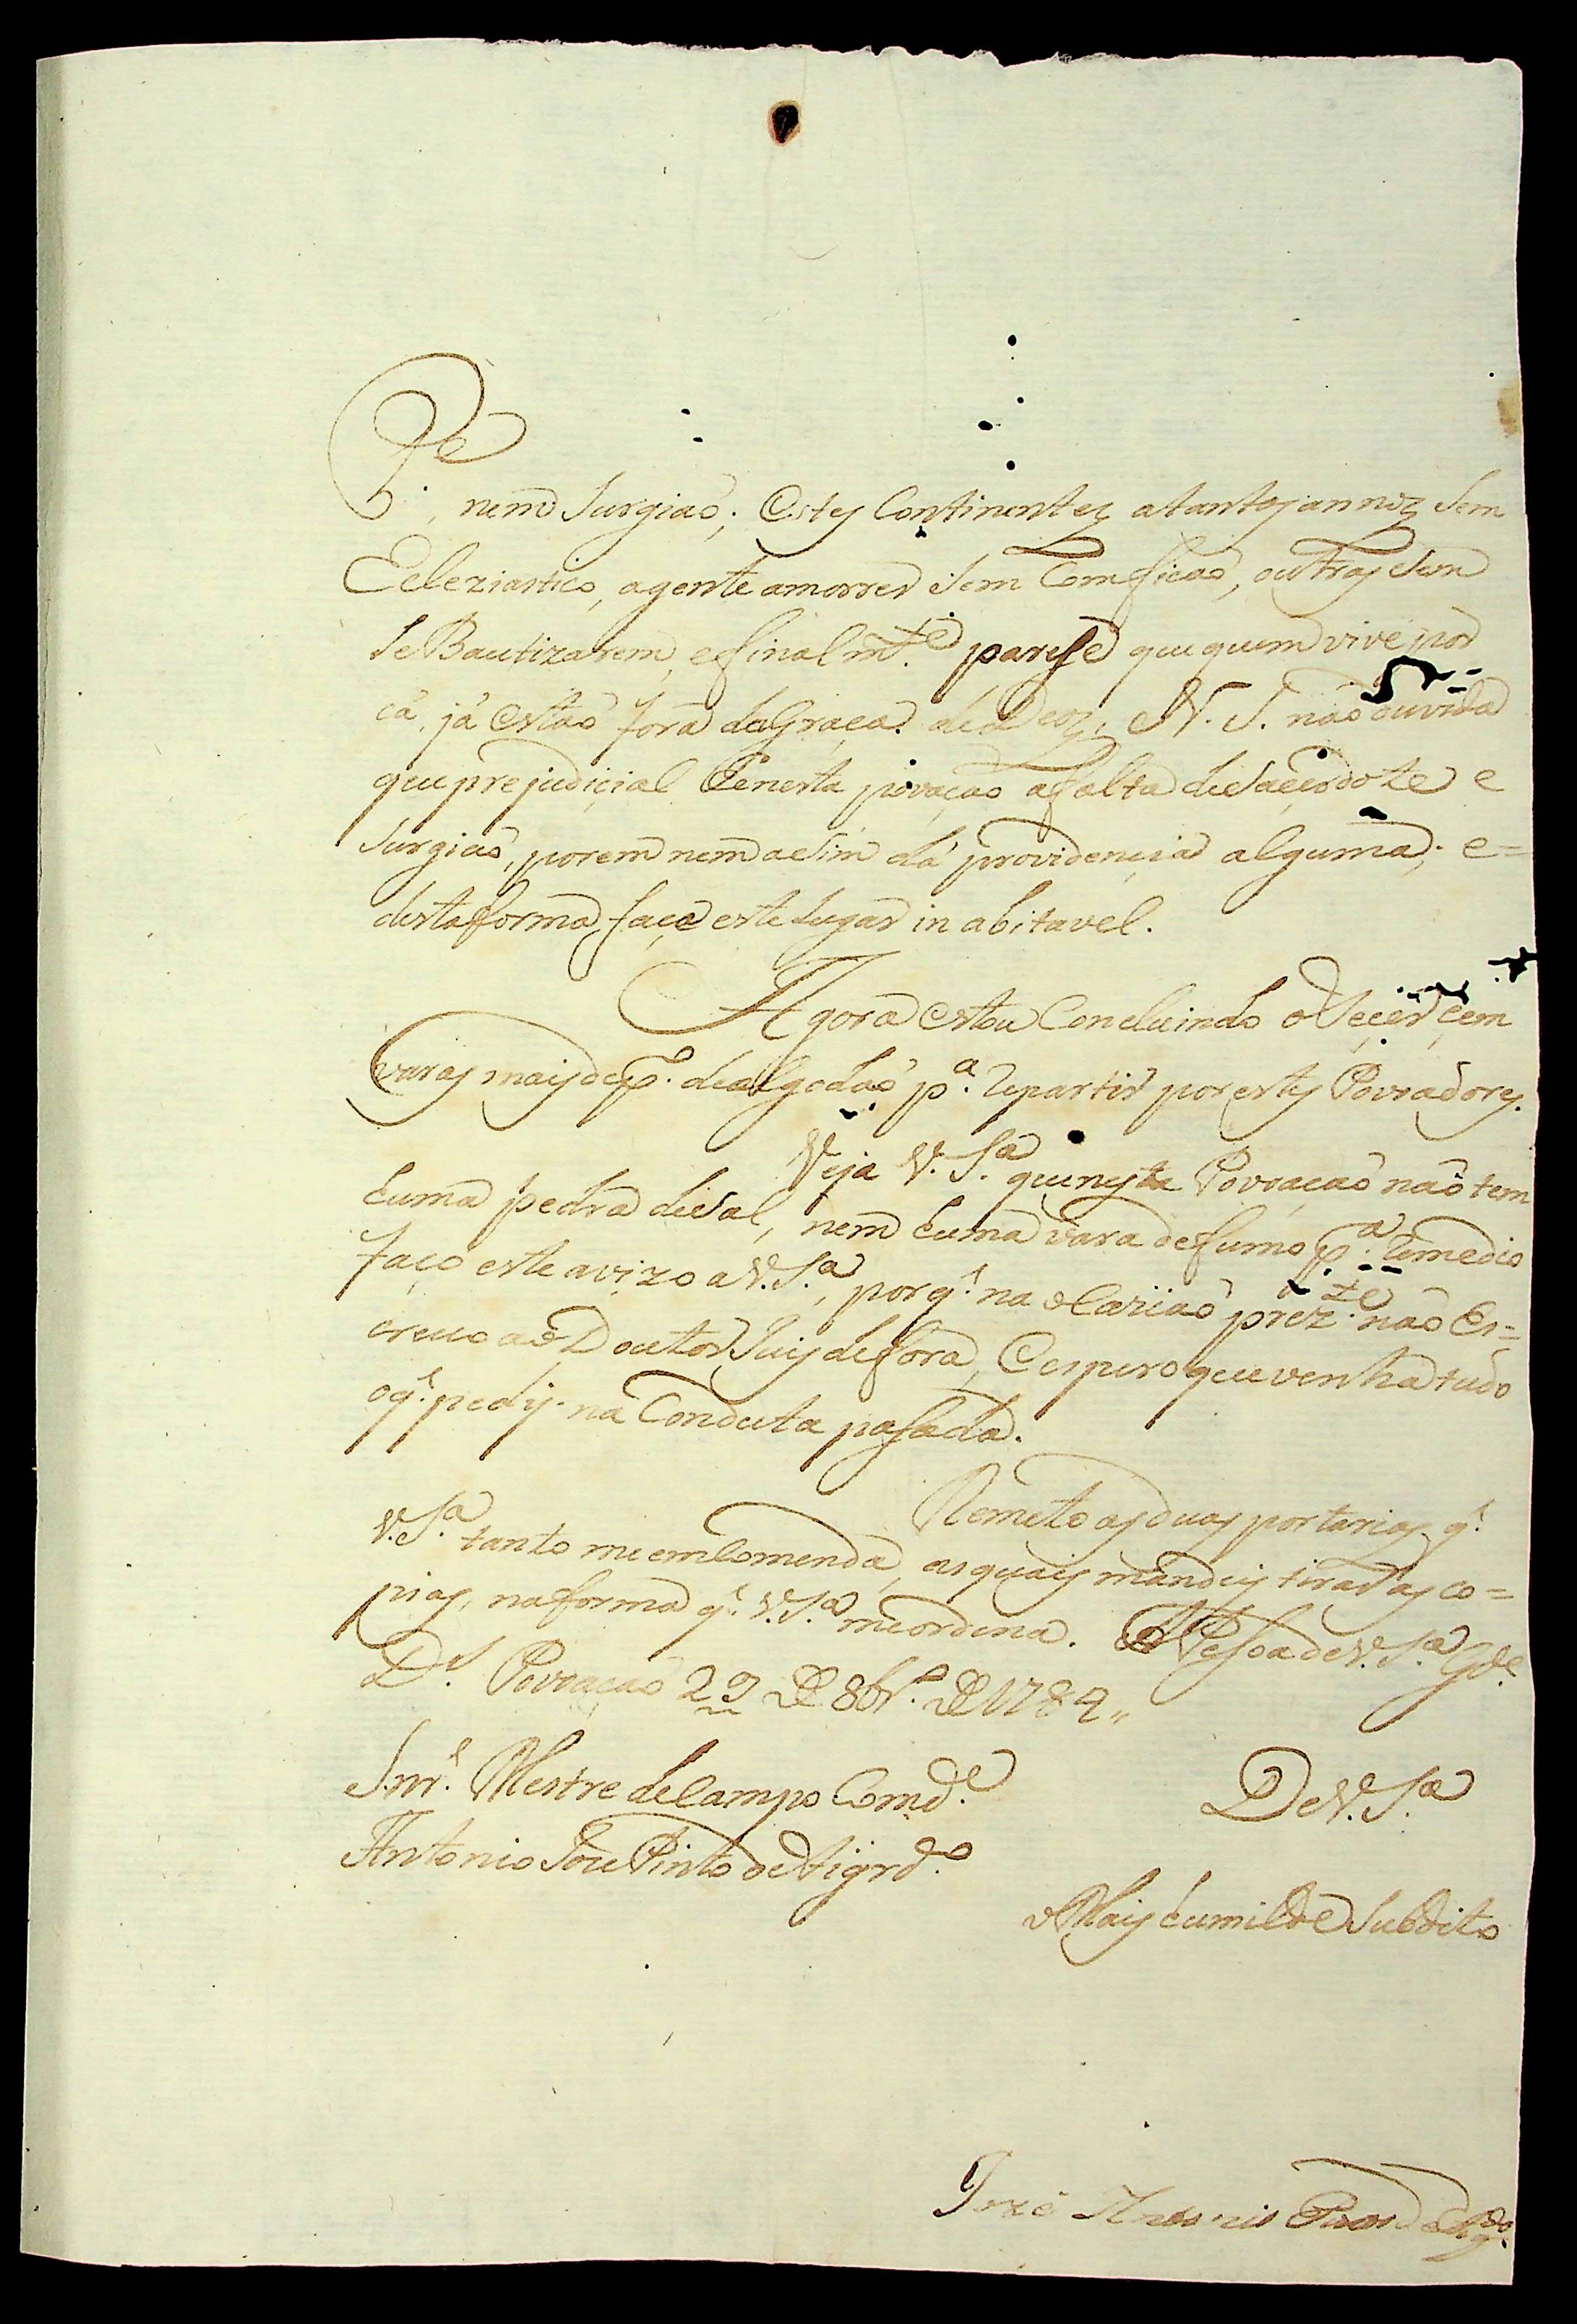 P.e
nem Surgiaó; Estes Continentez atantos annoz Sem
Ecleziastico, agente amorrer Sem Comficaó, outras Sem
Se Bautizarem, efinalm.te paresse que quem vive por
cá, já estaó fora da Graça de Deoz; N. S. naó duvida
que prejudiçial he nesta povaçaó afalta de Saçerdote e
Surgiaó, porem nem aSim dá providençia alguma; e=
desta forma, faço este lugar in abitavel.
Agora estou Concluindo o teçer çem
varas mais de p.º de algodaó p.ª Repartir por estes Povoadores.
Veja V. S.ª que nesta Povoaçaó naó tem
huma pedra de Sal, nem huma vara de fumo p.ª Remedio
faço este avizo a V. S.ª, por q.' na ocaziaó prez.te naó Es=
crevo ao Doutor Juis de fora, e espero que venha tudo
oq.' pedy na Conduta pasada.
Remeto as duas portarias q.'
V. S.ª tanto me emComenda, as quais mandey tirar as co=
pias, na forma q.' V. S.ª me ordena. A Pesoa de V. S.ª G.de
D.s Povoaçaó 29 de 8br.º de 1784,,
Snr.' Mestre de Campo Com.de
Antonio Joze Pinto de Figrd.º
De V. S.ª
o Mais humilde Subdito
Joze Antonio Pinto de Fig.do